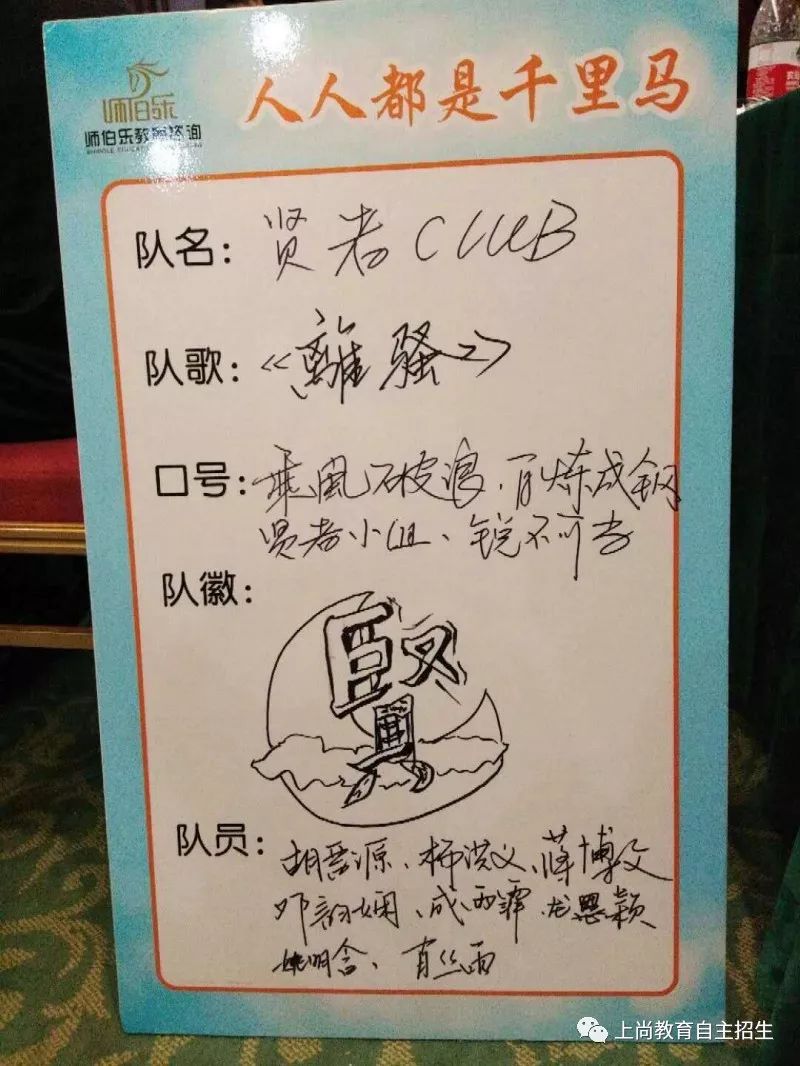 师伯乐
师伯乐教育咨询
人人都是千里马
队名：贤者CLUB
队歌：《離骚》
口号：乘風破浪、百炼成钢
贤者小组、锐不可当
队徽：
賢
队员：胡晋源、杨洪义、蒋博文
邓韵娴、成雨霏、龙思颖
姚明含、肖丝雨
上尚教育自主招生